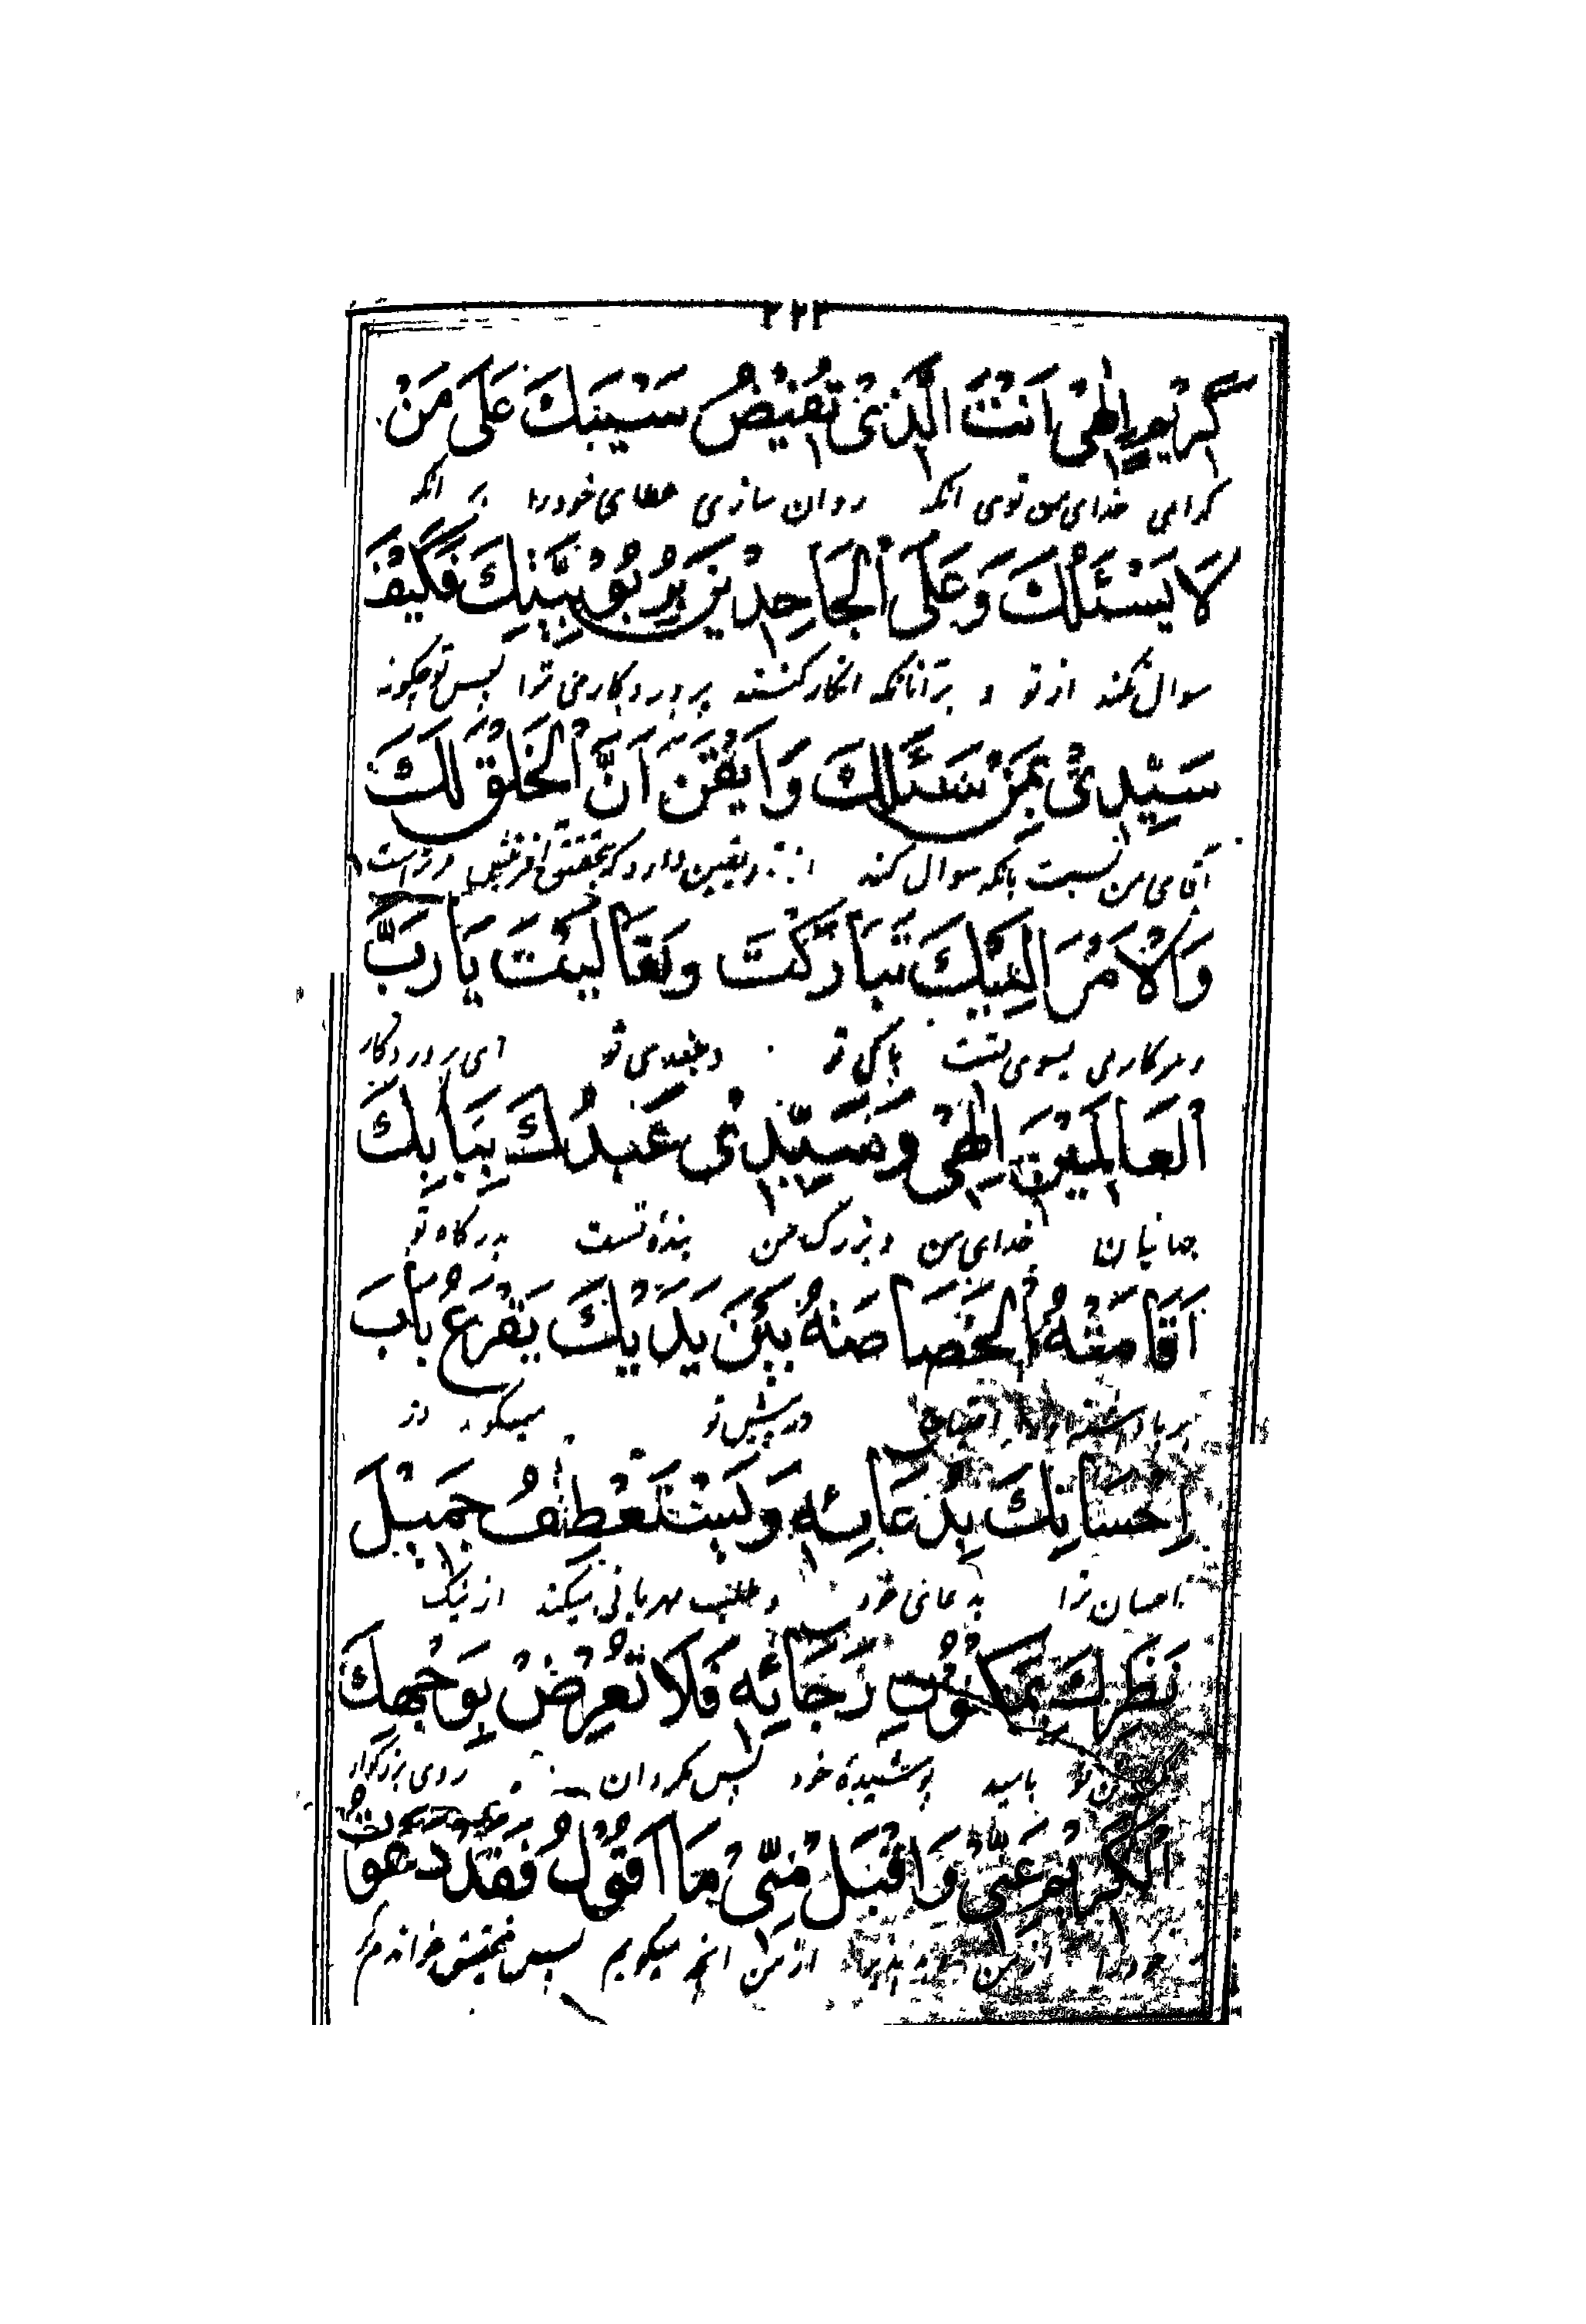 ٢٢٢
كَرِيْمٍ اِلٰهِىْ اَنْتَ الَّذِىْ تُفِيْضُ سَيْبَكَ عَلٰى مَنْ
کرامی خدای من توی انکه روان سازی عطای خود را بر انکه
لَا يَسْئَلُكَ وَعَلَى الْجَاحِدِيْنَ بِرُبُوْبِيَّتِكَ فَكَيْفَ
سوال نکند از تو و بر آنانکه انکار کننده پروردکاری ترا پس چکونه
سَيِّدِىْ بِمَنْ سَئَلَكَ وَاَيْقَنَ اَنَّ الْخَلْقَ لَكَ
آقای من نسبت بانکه سوال کند از تو و یقین دارد که بتحقیق آفرینش
وَالْاَمْرَ اِلَيْكَ تَبَارَكْتَ وَتَعَالَيْتَ يَا رَبَّ
و هر کاری بسوی تست پاکی تو و بلندی تو ای پروردکار
الْعَالَمِيْنَ اِلٰهِىْ وَسَيِّدِىْ عَبْدُكَ بِبَابِكَ
جهانیان خدای من و بزرک من بندۀ تست بدرکاه تو
اَقَامَتْهُ الْخَصَاصَةُ بَيْنَ يَدَيْكَ يَقْرَعُ بَابَ
در پیش تو میکوبد در
اِحْسَانِكَ بِدُعَائِهٖ وَيَسْتَعْطِفُ جَمِيْلَ
احسان ترا بدعای خود و طلب مهربانی میکند از نیک
نَظَرِكَ بِمَكْنُوْنِ رَجَائِهٖ فَلَا تُعْرِضْ بِوَجْهِكَ
بامید پوشیدۀ خود پس مکردان روی بزرکوار
الْكَرِيْمِ عَنِّىْ وَاقْبَلْ مِنِّىْ مَا اَقُوْلُ فَقَدْ دَعَوْتُ
خود را از من از من انچه میکویم پس بتحقیق خوانده‌ام